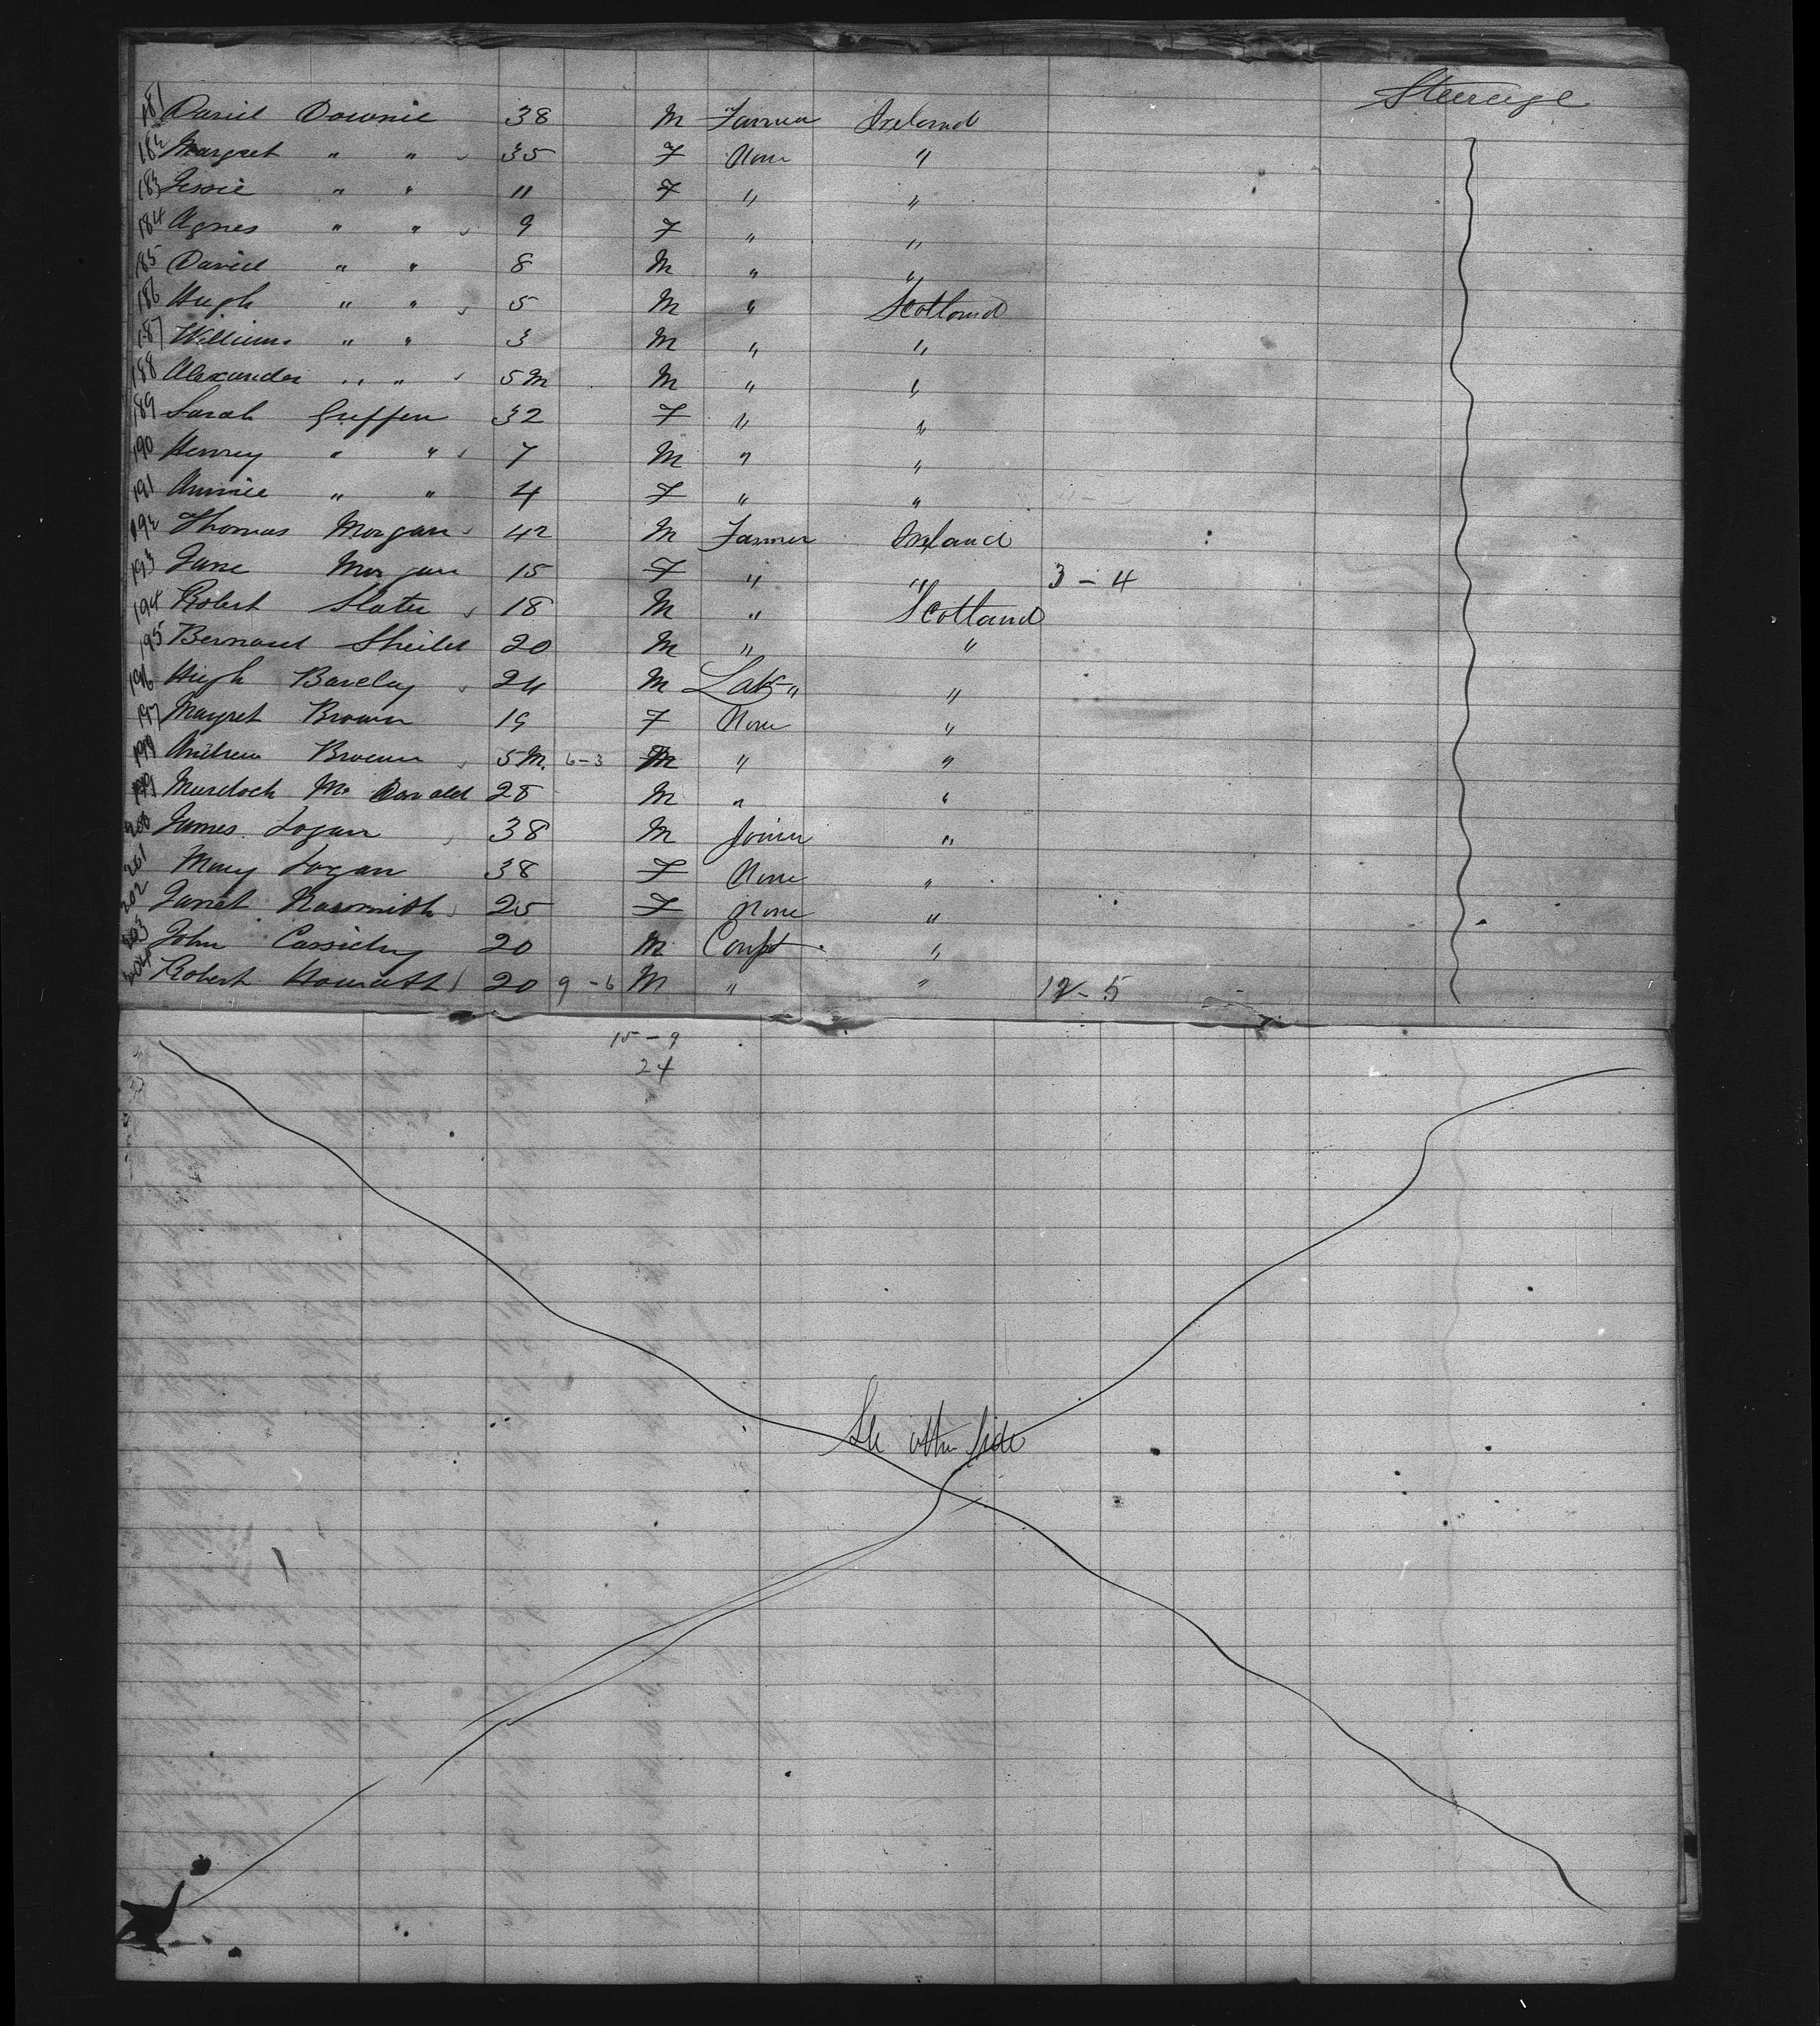 Steerage
181 David Downie 38 M Farmer Ireland
182 Margret " " 35 F None "
183 Jessie " " 11 F " "
184 Agnes " " 9 F " "
185 David " " 8 M " "
186 Hugh " " 5 M " Scotland
187 William " " 3 M " "
188 Alexander " " 5 M M " "
189 Sarah Griffen 32 F " "
190 Henrey " " 7 M " "
191 Annie " " 4 F " "
192 Thomas Morgan 42 M Farmer Ireland
193 Jane Morgan 15 F " " 3 - 4
194 Robert Slater 18 M " Scotland
195 Bernard Sheiled 20 M " "
196 Hugh Barclay 24 M Lab " "
197 Margret Brown 19 F None "
198 Andrew Brown 5 M. 6-3 M " "
199 Murdoch Mc Donald 28 M " "
200 James Logan 38 M Joiner "
201 Mary Logan 38 F None "
202 Janet Nasmith 25 F None "
203 John Cassidy 20 M "
204 Robert Howarth 20 9 - 6 M " " 12 - 5
15 - 9
24
See other Side